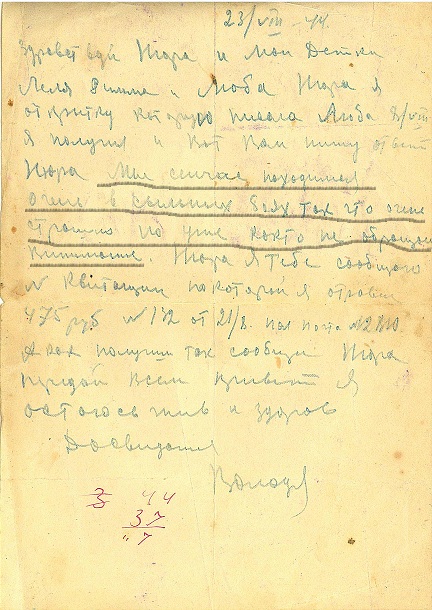 23/VIII-44.
Здравствуй Нюра и мои детки
Леля Римма и Люба Нюра я
открытку которую писала Люба 8/VIII
я получил и вот вам пишу ответ
Нюра Мы сичас находимся
очень в сильных боях так что очень
страшно но уже както не обращаем
внимание. Нюра я тебе сообщаю
№ квитанции по которой я отправил
475 руб № 172 от 21/8. пол почта №
как получиш так сообщи Нюра
передай всем привет Я
остаюсь жив и здоров
Досвидания
Володя
3 44
37
" 7